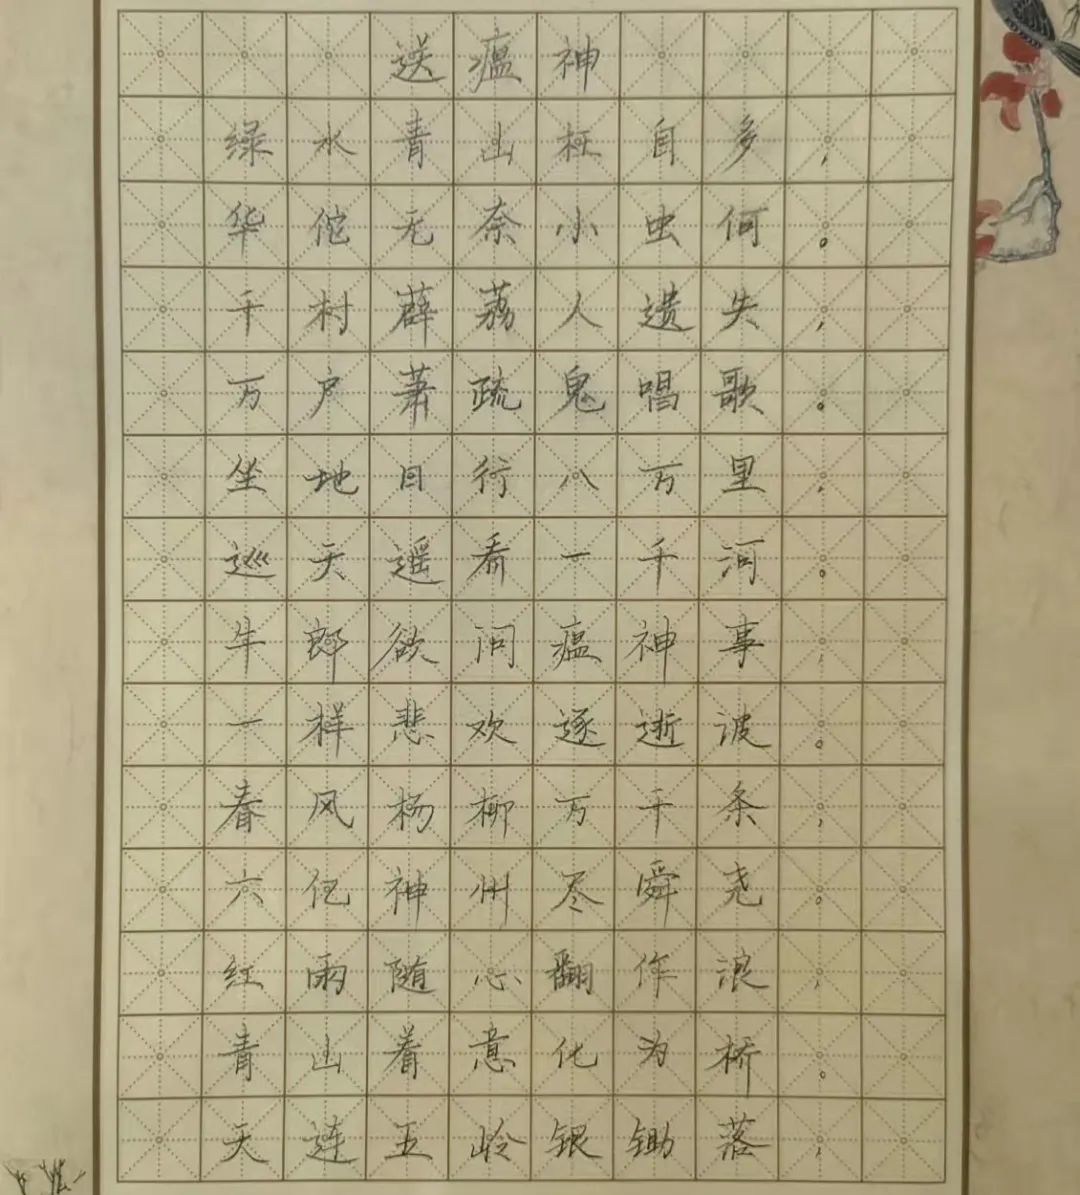 送瘟神
绿水青山枉自多，
华佗无奈小虫何。
千村薜荔人遗失，
万户萧疏鬼唱歌。
坐地日行八万里，
巡天遥看一千河。
牛郎欲问瘟神事，
一样悲欢逐逝波。
春风杨柳万千条，
六亿神州尽舜尧。
红雨随心翻作浪，
青山着意化为桥。
天连五岭银锄落，